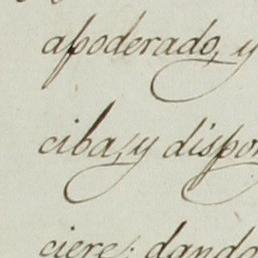 apoderado, y
ciba, y dispon
ciere: dando